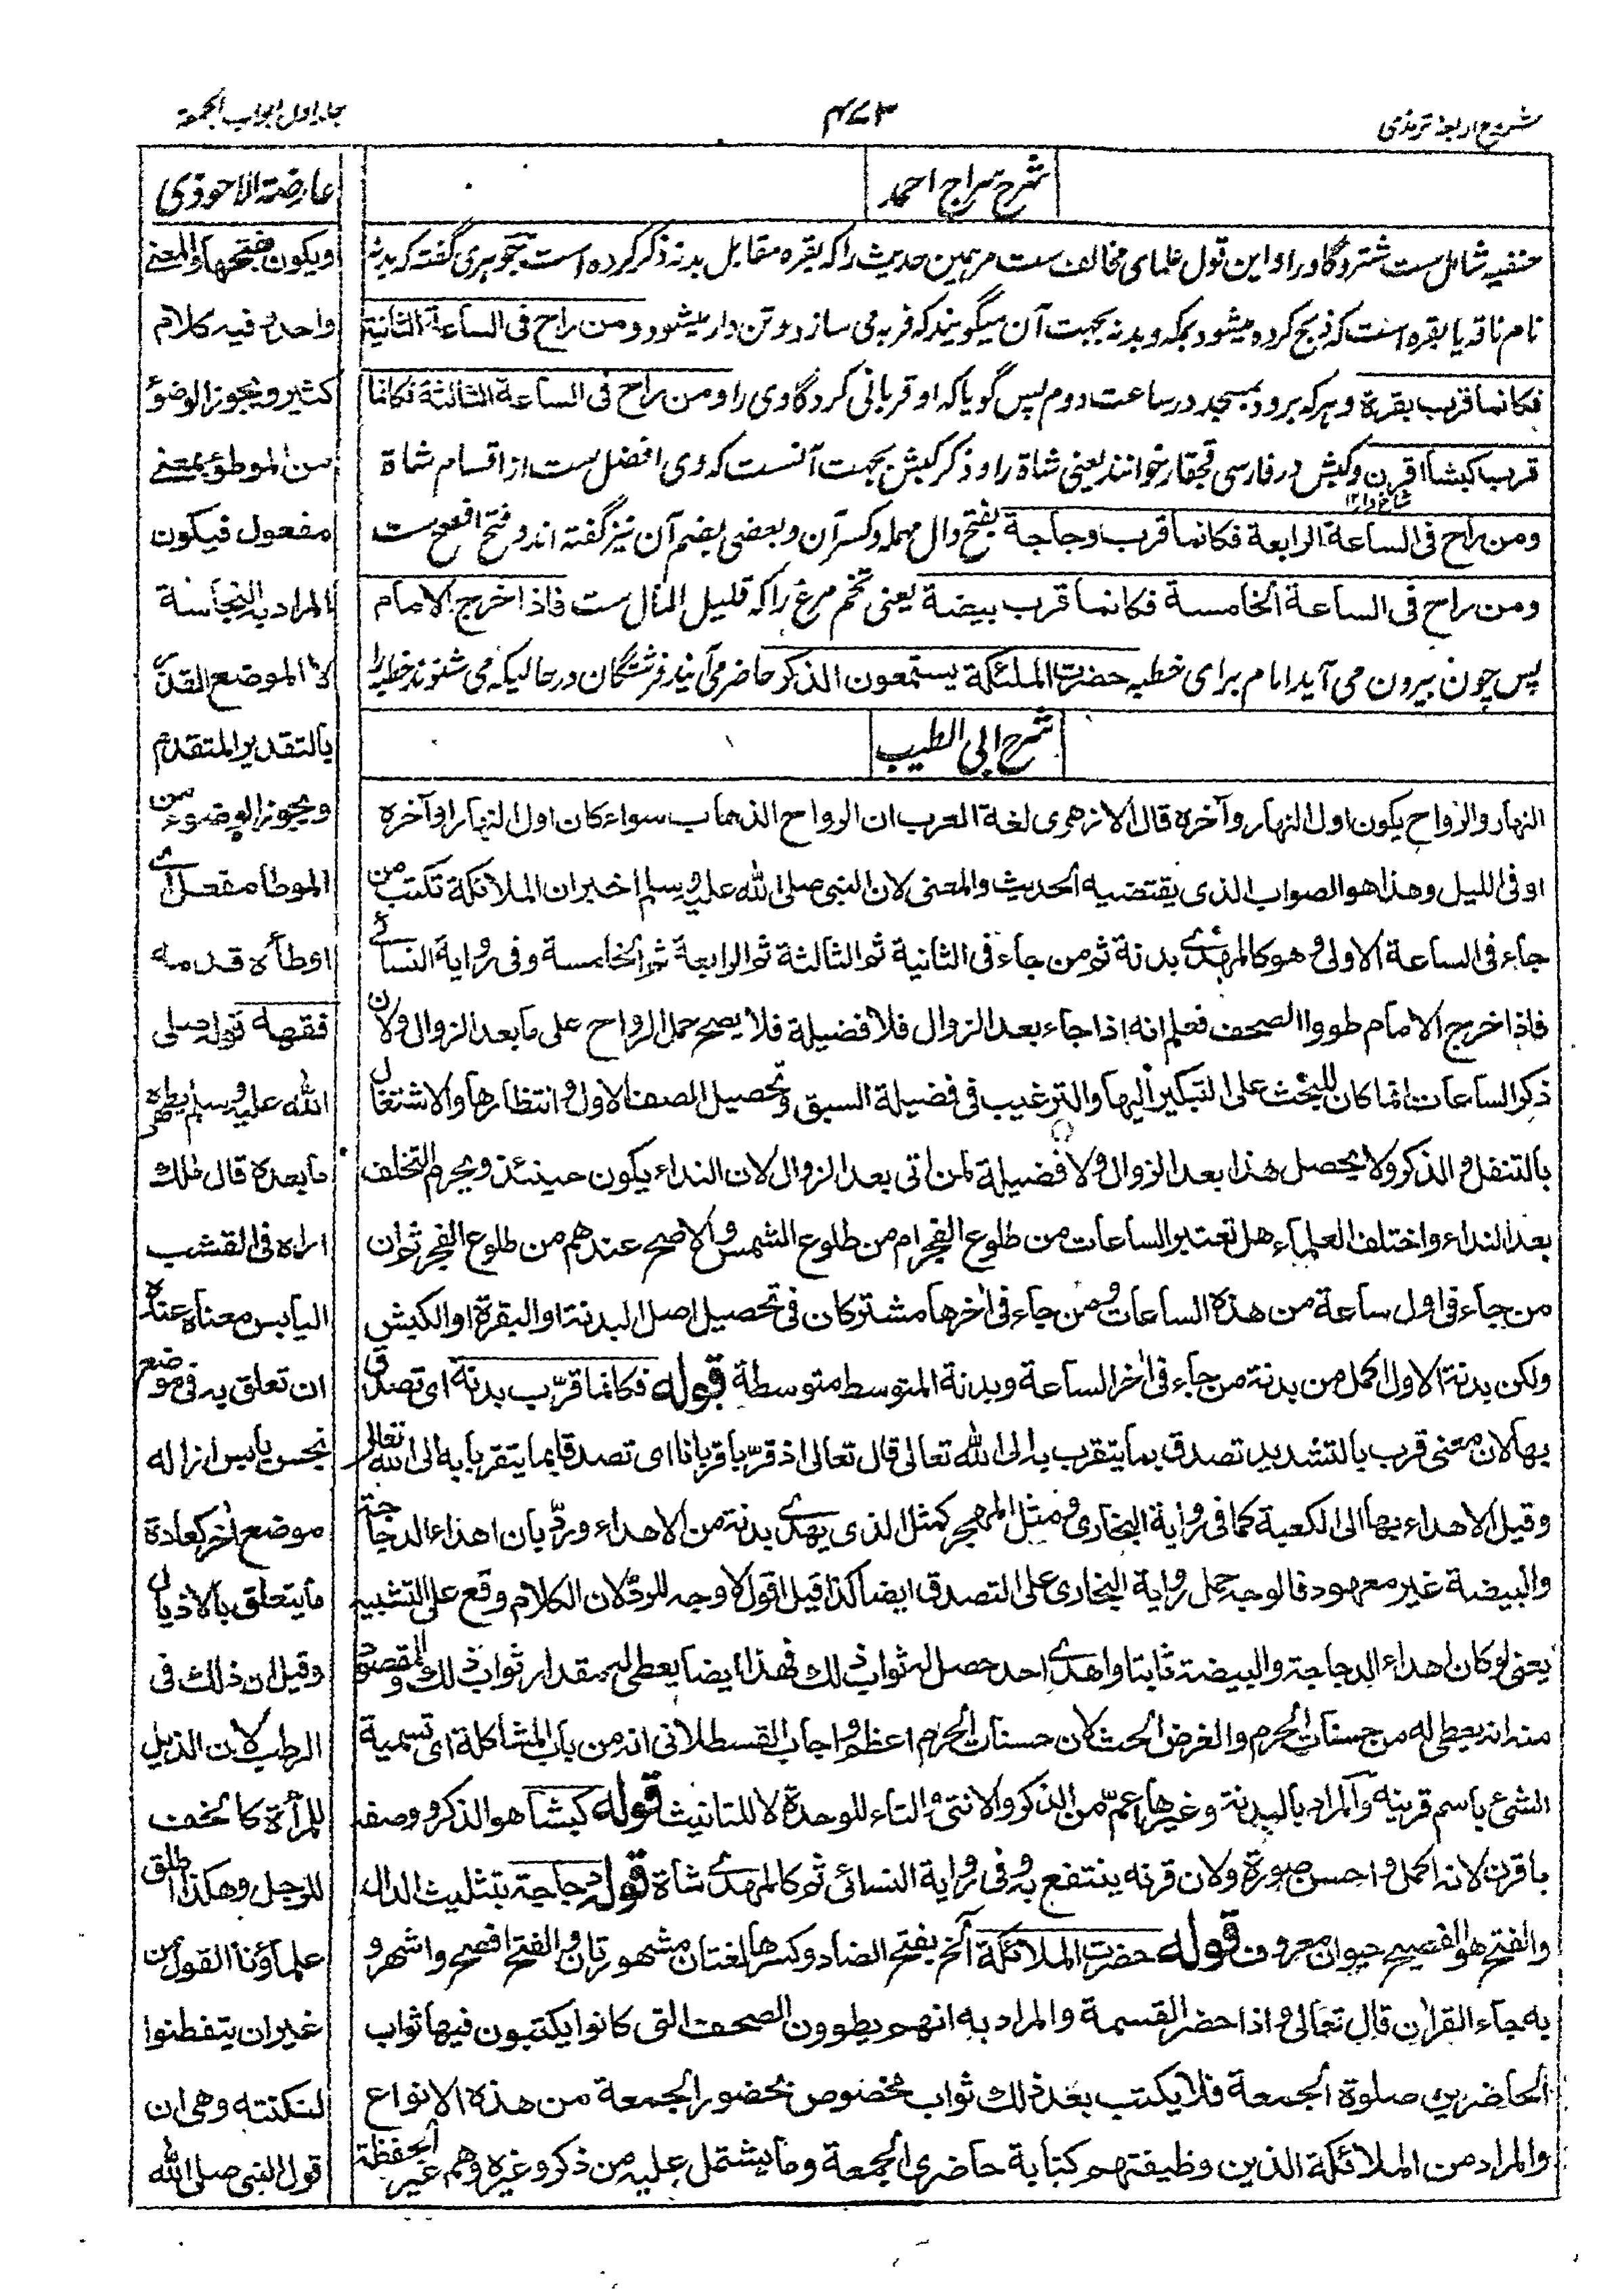 شروح اربعۂ ترمذی
۴۷۳
جلد اول ابواب الجمعة
شرح سراج احمد
حنفیہ شامل ست شتر و گاو را و این قول علمای مخالف ست مر ہمین حدیث را کہ بقرہ مقابل بدنہ ذکر کردہ است جوہری گفتہ کہ بدنہ
نام ناقہ یا بقرہ است کہ ذبح کردہ میشود بمکہ و بدنہ بجہت آن میگویند کہ فربہ می سازد و تن دار میشود ومن راح فی الساعة الثانیة
فکانما قرب بقرة و ہر کہ برود بمسجد در ساعت دوم پس گویا کہ او قربانی کرد گاوی را ومن راح فی الساعة الثالثة فکانما
قرب کبشا اقرن وکبش در فارسی قچقار خوانند یعنی شاة را و ذکر کبش بجہت آنست کہ وی افضل ست از اقسام شاة
شاخ دار ۱۲
ومن راح فی الساعة الرابعة فکانما قرب دجاجة بفتح دال مہملہ وکسر آن و بعضی بضم آن نیز گفتہ اند و فتح افصح ست
ومن راح فی الساعة الخامسة فکانما قرب بیضة یعنی تخم مرغ را کہ قلیل المال ست فاذا خرج الامام
پس چون بیرون می آید امام برای خطبہ حضرت الملئکة یستمعون الذکر حاضر می آیند فرشتگان در حالیکہ می شنوند خطبہ را
شرح ابی الطیب
النهار والرواح یکون اول النهار وآخره قال الازهری لغة العرب ان الرواح الذهاب سواء کان اول النهار او آخره
او فی اللیل وهذا هو الصواب الذی یقتضیه الحدیث والمعنی لان النبی صلی الله علیه وسلم اخبر ان الملائکة تکتب من
جاء فی الساعة الاولی وهو کالمهدی بدنة ثم من جاء فی الثانیة ثم الثالثة ثم الرابعة ثم الخامسة وفی روایة النسائی
فاذا خرج الامام طووا الصحف فعلم انه اذا جاء بعد الزوال فلا فضیلة فلا یصح حمل الرواح علی ما بعد الزوال ولان
ذکر الساعات انما کان للحث علی التبکیر الیها والترغیب فی فضیلة السبق وتحصیل الصف الاول وانتظارها والاشتغال
بالتنفل والذکر ولا یحصل هذا بعد الزوال ولا فضیلة لمن اتی بعد الزوال لان النداء یکون حینئذ ویحرم التخلف
بعد النداء واختلف العلماء هل تعتبر الساعات من طلوع الفجر ام من طلوع الشمس والاصح عندهم من طلوع الفجر ثم ان
من جاء فی اول ساعة من هذه الساعات ومن جاء فی اخرها مشترکان فی تحصیل اصل البدنة او البقرة او الکبش
ولکن بدنة الاول اکمل من بدنة من جاء فی اخر الساعة وبدنة المتوسط متوسطة قوله فکانما قرّب بدنة ای تصدق
بها لان معنی قرب بالتشدید تصدق بما یتقرب به الی الله تعالی قال تعالی اذ قرّبا قربانا ای تصدقا بما یتقربا به الی الله تعالی
وقیل الاهداء بها الی الکعبة کما فی روایة البخاری ومثل المهجر کمثل الذی یهدی بدنة من الاهداء وردّ بان اهداء الدجاجة
والبیضة غیر معهود فالوجه حمل روایة البخاری علی التصدق ایضا کذا قیل اقول لا وجه للرد لان الکلام وقع علی التشبیه
یعنی لو کان اهداء الدجاجة والبیضة ثابتا واهدی احد حصل له ثواب ذلك فهذا ایضا یعطی له بمقدار ثواب ذلك والمقصود
منه انه یعطی له من حسنات الحرم والغرض الحث لان حسنات الحرم اعظم واجاب القسطلانی انه من باب المشاکلة ای تسمیة
الشئ باسم قرینه والمراد بالبدنة وغیرها اعمّ من الذکر والانثی والتاء للوحدة لا للتانیث قوله کبشا هو الذکر ووصفه
باقرن لانه اکمل واحسن صورة ولان قرنه ینتفع به وفی روایة النسائی ثم کالمهدی شاة قوله دجاجة بتثلیث الدال
والفتح هو الفصیح حیوان معروف قوله حضرت الملائکة الخ بفتح الضاد وکسرها لغتان مشهورتان والفتح افصح واشهر و
به جاء القران قال تعالی واذا حضر القسمة والمراد به انهم یطوون الصحف التی کانوا یکتبون فیها ثواب
الحاضرین صلوة الجمعة فلا یکتب بعد ذلك ثواب مخصوص بحضور الجمعة من هذه الانواع
والمراد من الملائکة الذین وظیفتهم کتابة حاضری الجمعة وما یشتمل علیه من ذکر وغیره وهم غیر الحفظة
عارضة الاحوذی
ویکون فتحها والمعنی
واحد وفیه کلام
کثیر ویجوز الوضوٴ
من الموطوٴ بمعنی
مفعول فیکون
المراد به النجاسة
لا الموضع القذر
بالتقدیر المتقدم
ویجوز الوضوء من
الموطأ مفعل ای
اوطأه قدمه
فقهه قوله صلی
الله علیه وسلم یطهره
ما بعده قال ملك
اراه فی القشب
الیابس معناه عنده
ان تعلق به فی موضع
نجس یابس ازاله
موضع اخر کعادة
ما یتعلق بالاذیال
وقیل ان ذلك فی
الرطب لان الذیل
للمرأة کالخف
للرجل وهکذا اطلق
علماؤنا القول من
غیر ان یتفطنوا
لنکتته وهی ان
قول النبی صلی الله